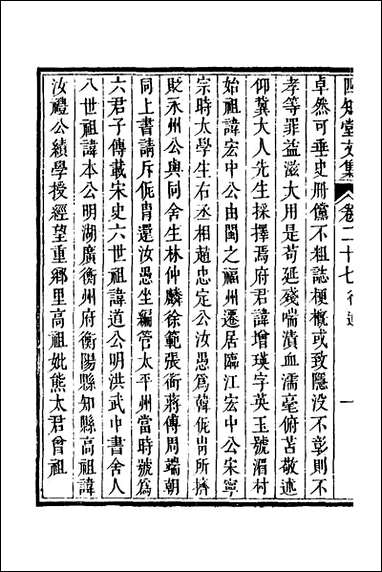 四知堂文集 卷二十七 行述 一
卓然可垂史册儻不粗誌梗概或致隱沒不彰則不
孝等罪益滋大用是苟延殘喘漬血濡毫俯苫敬述
仰冀大人先生採擇焉府君諱增瑛字英玉號湄村
始祖諱宏中公由閩之福州遷居臨江宏中公宋寧
宗時太學生右丞相趙忠定公汝愚爲韓侂冑所擠
貶永州公與同舍生林仲麟徐範張衜蔣傅周端朝
同上書請斥侂冑還汝愚坐編管太平州當時號爲
六君子傳載宋史六世祖諱道公明洪武中書舍人
八世祖諱本公明湖廣衡州府衡陽縣知縣高祖諱
汝禮公績學授經望重鄉里高祖妣熊太君曾祖